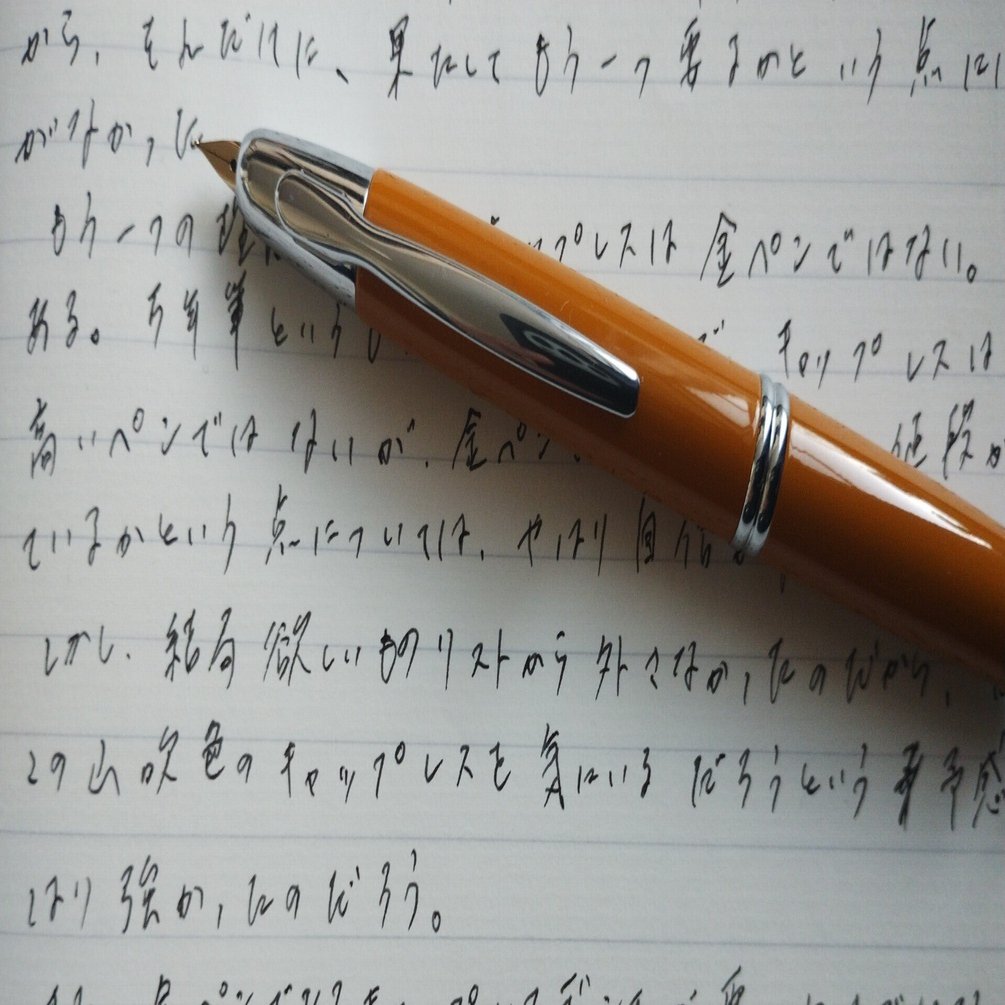 から、それだけに、果たしてもう一つ要るのかという点に
がなかった
もう一つの理 プレスは金ペンではない。
ある。万年筆という キャップレスは
高いペンではないが、金ペン 値段が
ているかという点については、やはり自信
しかし、結局欲しいものリストから外さなかったのだから、
この山吹色のキャップレスを気にいるだろうという予感
はり強かったのだろう。